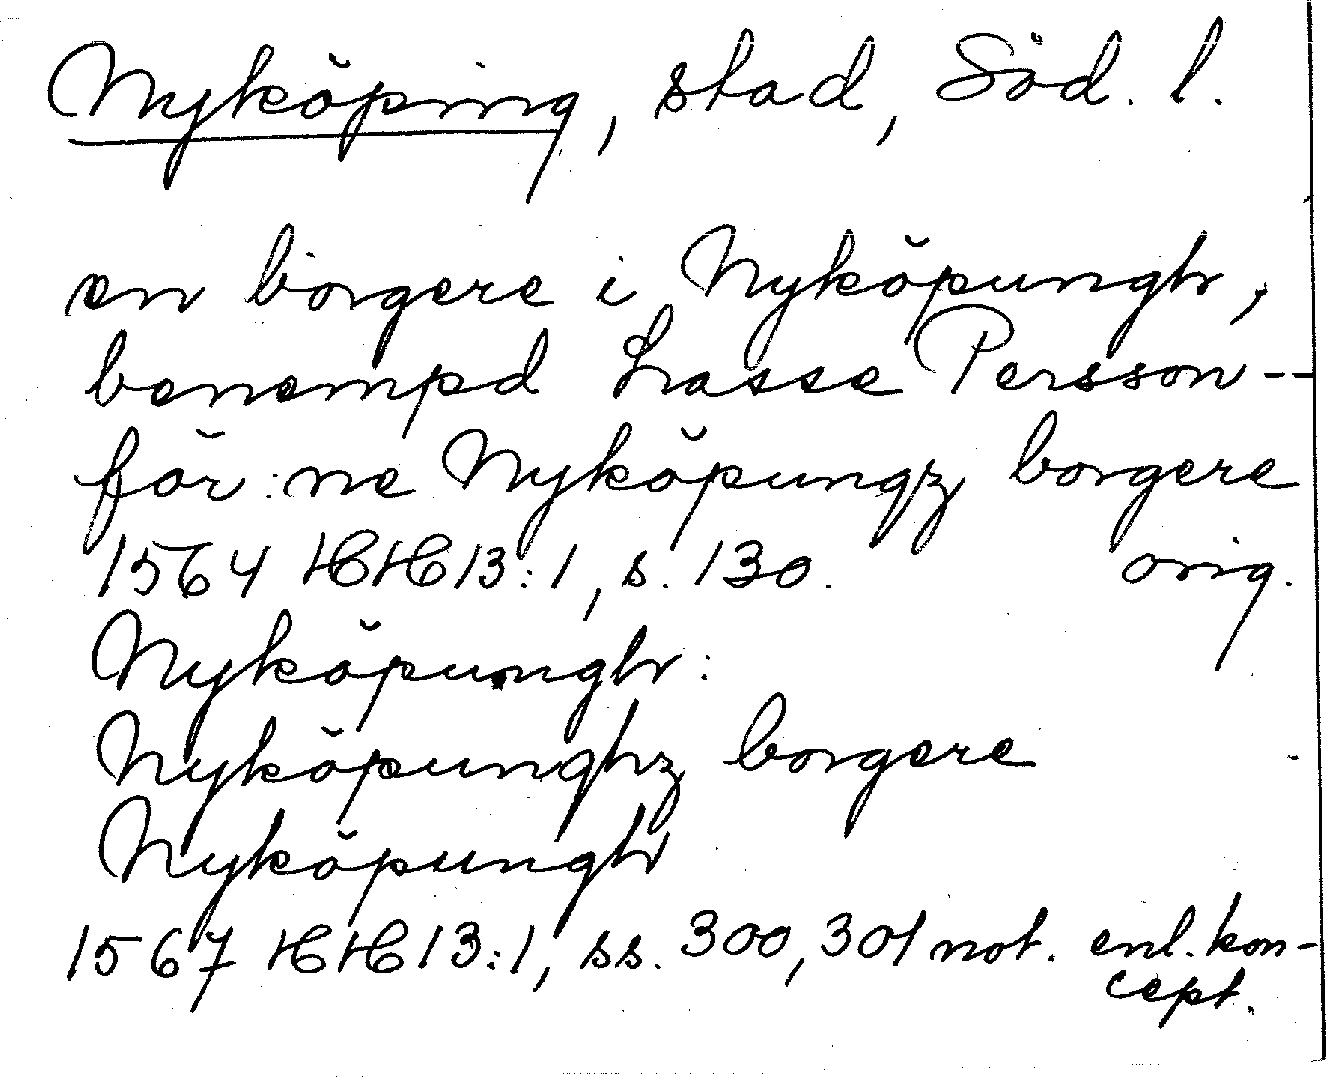 Nyköping, stad, Söd. l.
en borgere i Nyköpungh,
benempd Lasse Persson --
för:ne Nyköpungz borgere
1564 HH13:1, s. 130. orig.
Nyköpungh:
Nyköpunghz borgere
Nyköpungh
1567 HH13:1, ss. 300, 301 not. enl. kon-
cept.